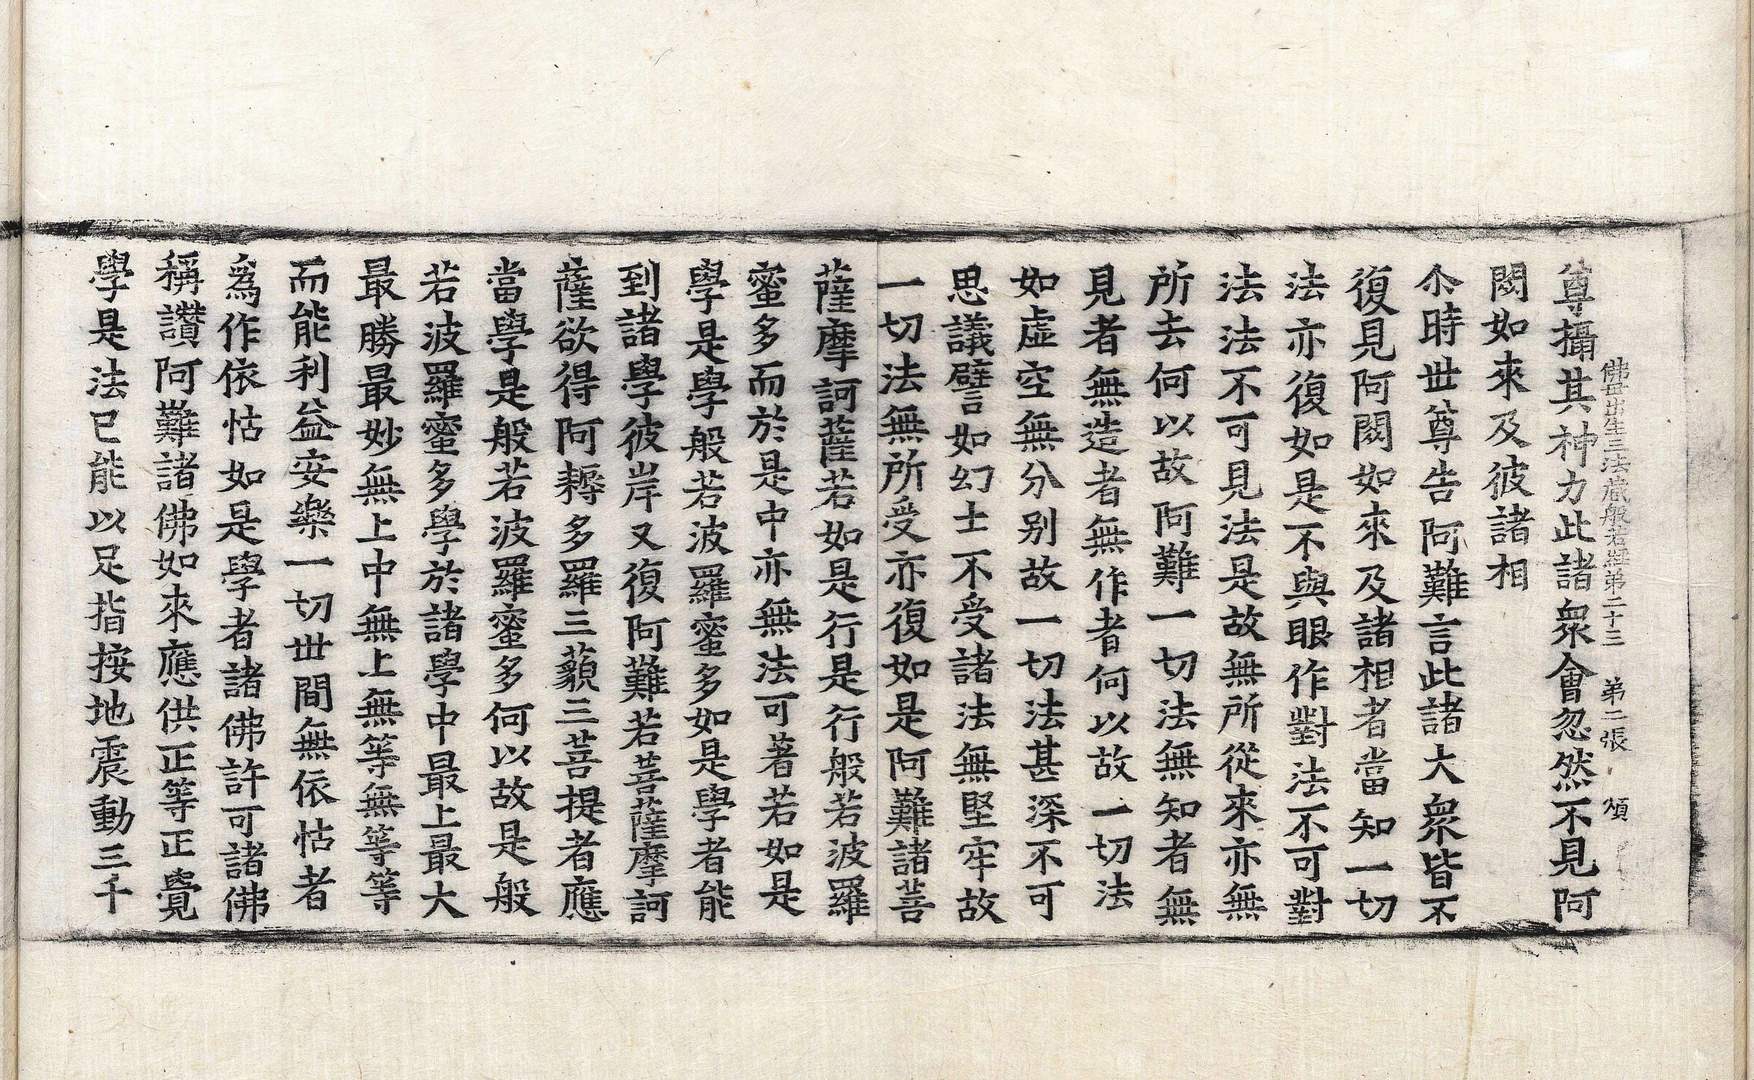 尊攝其神力此諸衆會忽然不見阿
佛母出生三法藏般若經第二十三 第二張 頌
閦如來及彼諸相
尒時世尊告阿難言此諸大衆皆不
復見阿閦如來及諸相者當知一切
法亦復如是不與眼作對法不可對
法法不可見法是故無所從來亦無
所去何以故阿難一切法無知者無
見者無造者無作者何以故一切法
如虛空無分别故一切法甚深不可
思議譬如幻士不受諸法無堅牢故
一切法無所受亦復如是阿難諸菩
薩摩訶薩若如是行是行般若波羅
蜜多而於是中亦無法可著若如是
學是學般若波羅蜜多如是學者能
到諸學彼岸又復阿難若菩薩摩訶
薩欲得阿耨多羅三藐三菩提者應
當學是般若波羅蜜多何以故是般
若波羅蜜多學於諸學中最上最大
最勝最妙無上中無上無等無等等
而能利益安樂一切世間無依怙者
爲作依怙如是學者諸佛許可諸佛
稱讚阿難諸佛如來應供正等正覺
學是法已能以足指按地震動三千